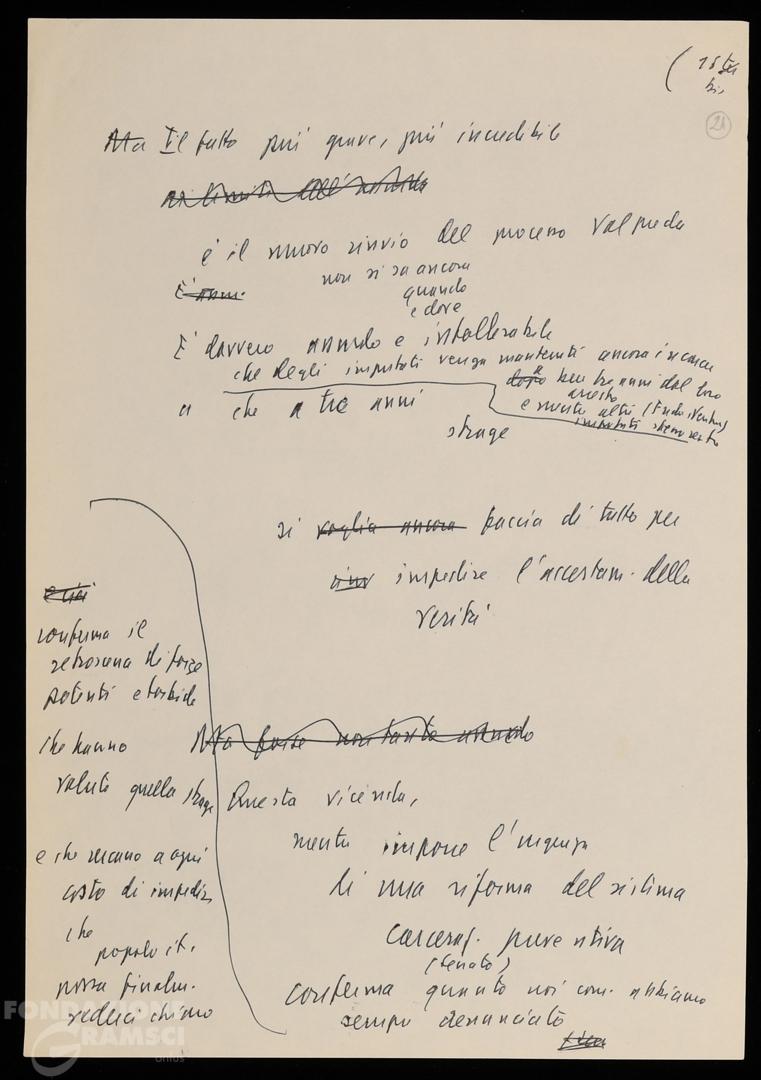 (15 ter
bis
21
Ma Il fatto più grave, più incredibile
ai limiti dell'assurdo
è il nuovo rinvio del processo Valpreda
non si sa ancora
quando
e dove
È assur.
È davvero assurdo e intollerabile
che degli imputati venga mantenuti ancora in carcere
dopo a ben tre anni dal loro
arresto
e mentre altri (Freda Ventura)
imputati
a che a tre anni
strage
si voglia ancora faccia di tutto per
impedire l'accertam. della
verità
e ciò
conferma il
retroscena di forze
potenti e torbide
che hanno
voluto quella strage
e che cercano a ogni
costo di impedire
che
popolo it.
possa finalm.
vederci chiaro
Ma forse non tanto assurdo
Questa vicenda,
mentre impone l'urgenza
di una riforma del sistema
carceraz. preventiva
(Senato)
conferma quanto noi com. abbiamo
sempre denunciato
FONDAZIONE
GRAMSCI
onlus